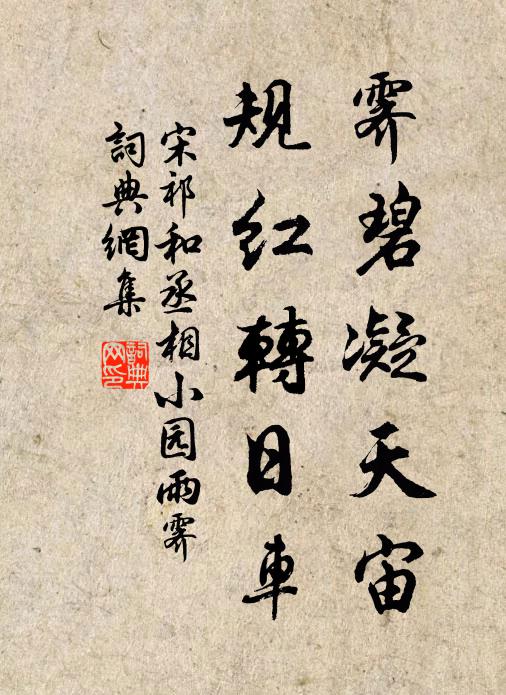 霽碧凝天宙
規紅轉日車
宋祁和丞相小园雨霽
詞典網集
詞典网印